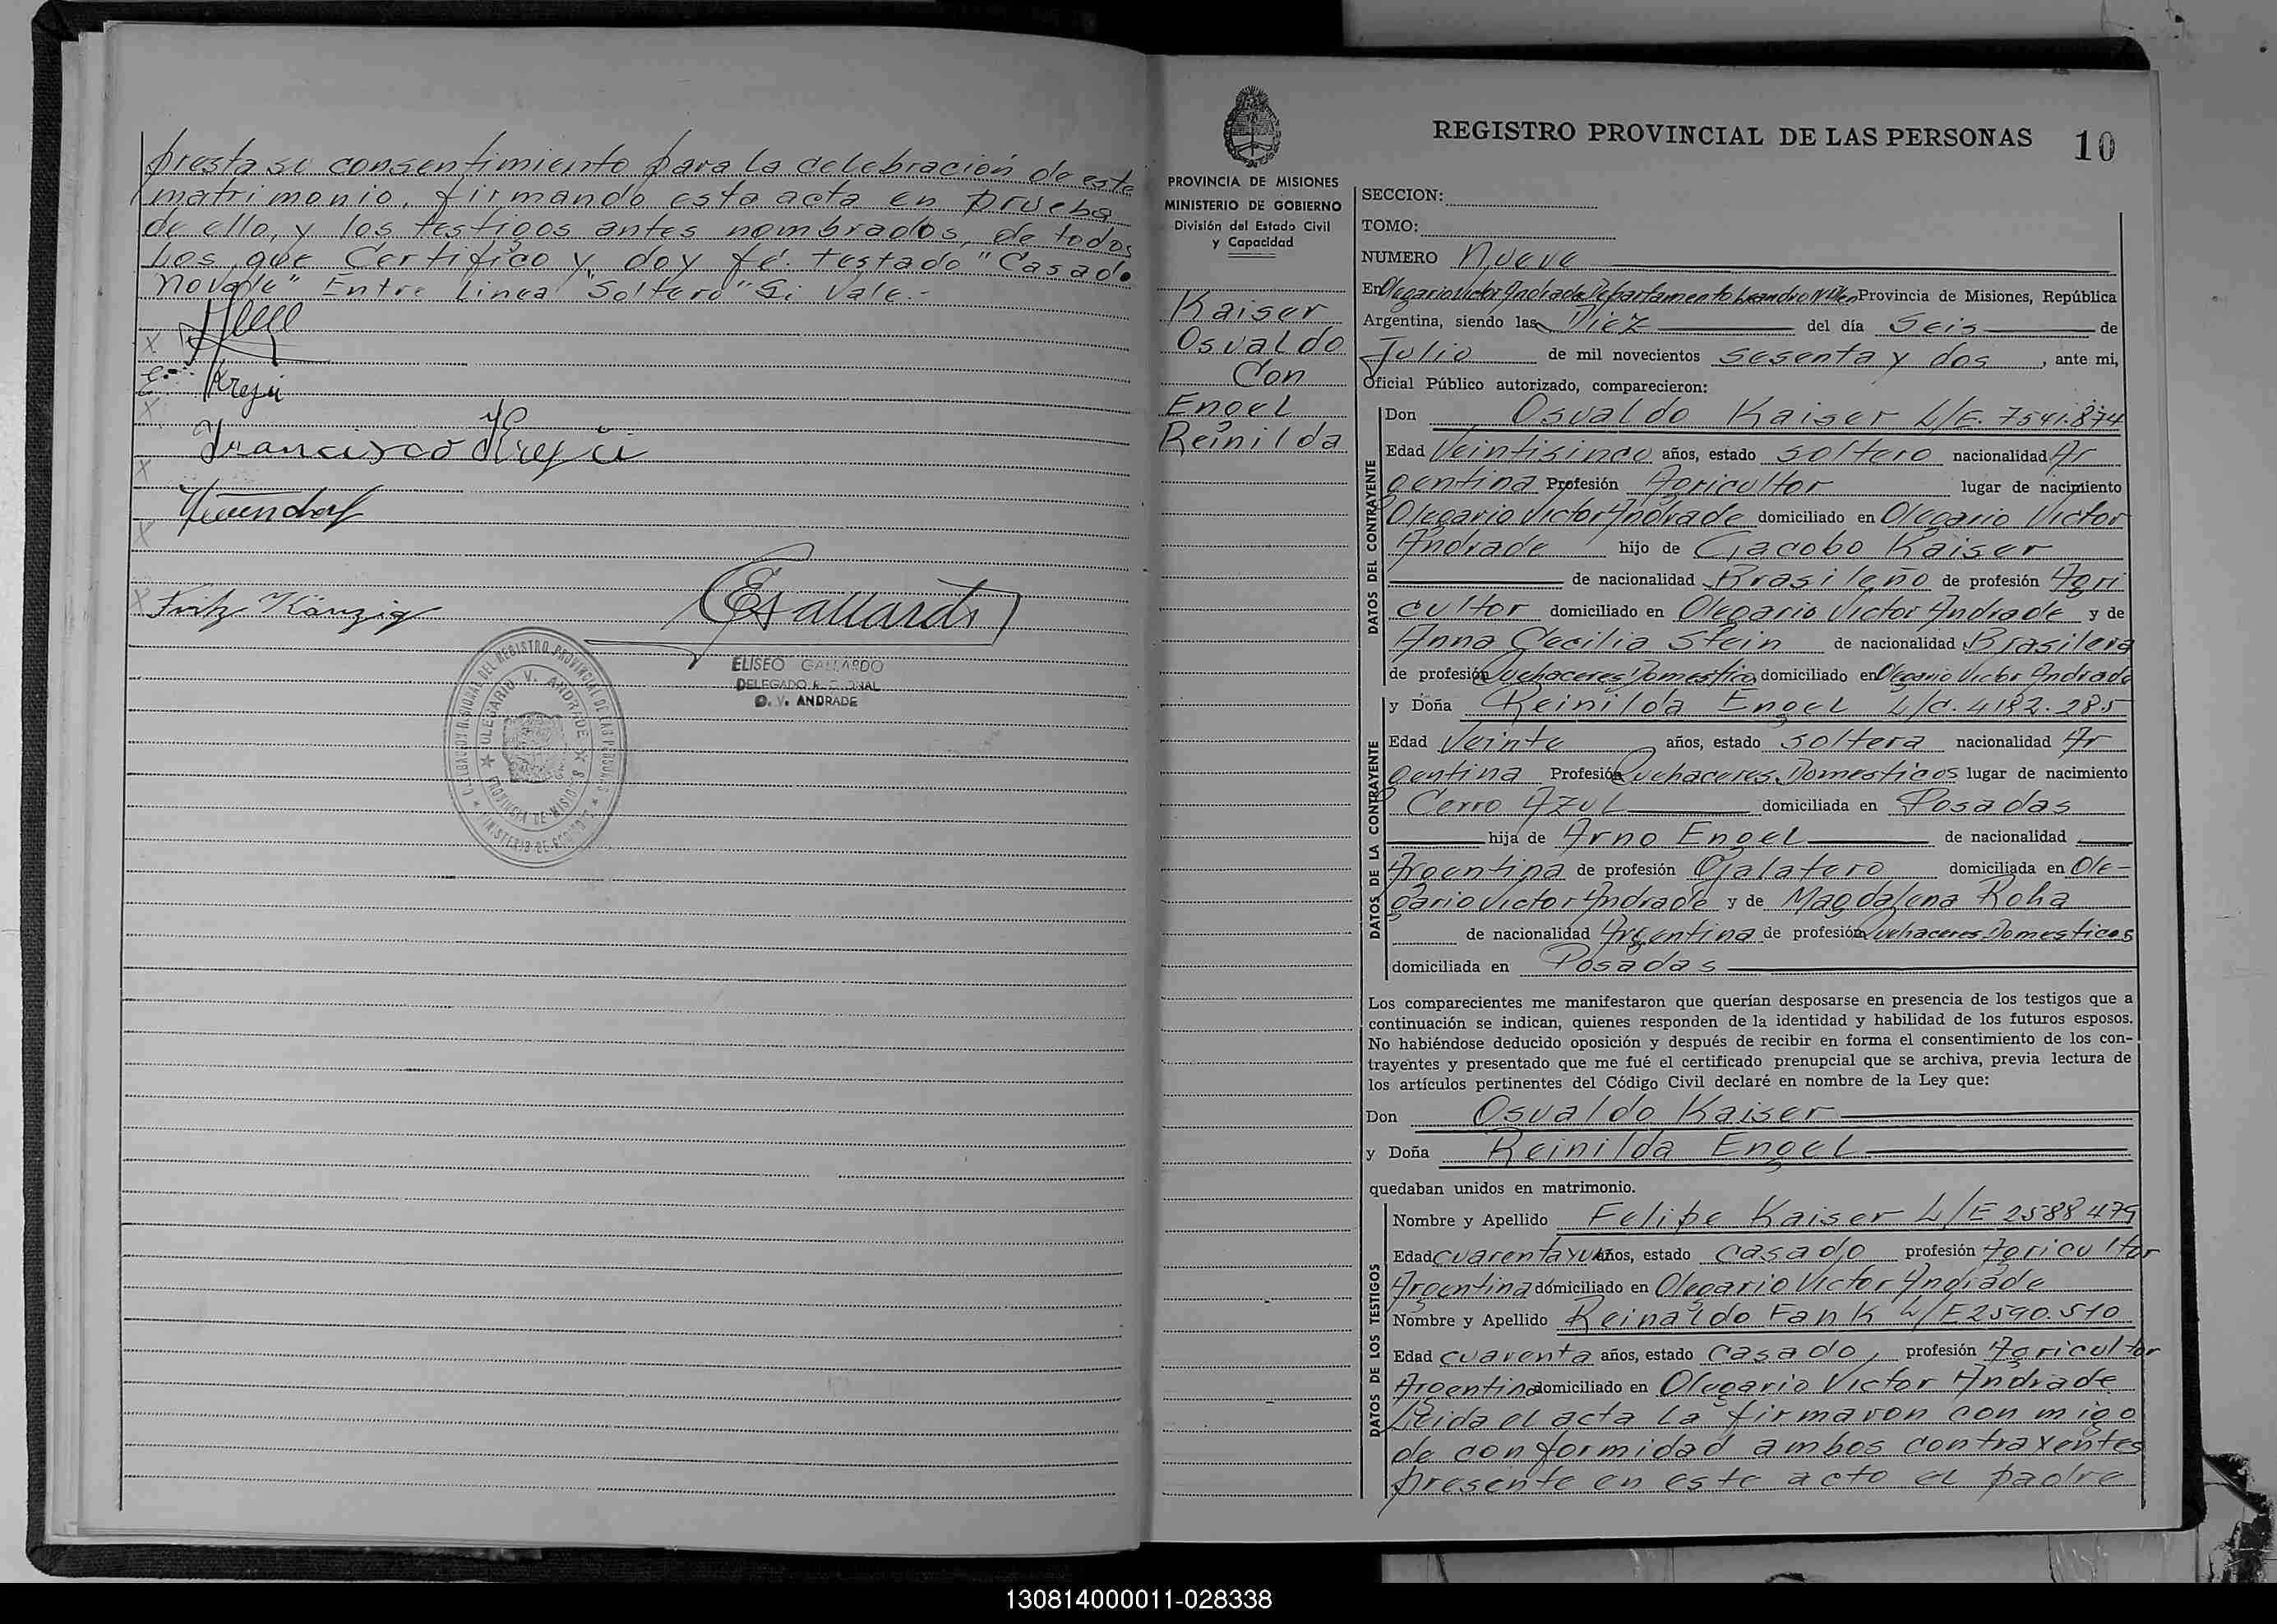 presta su consentimiento para la celebración de este
matrimonio, firmando esta acta en prueba
de ello, y los testigos antes nombrados, de todos
los que Certifico y doy fé. testado "Casado
no vale" Entre Linea "Soltero" Si Vale.-
Francisco
Fritz Känzig
EGallardo
ELISEO GALLARDO
DELEGADO REGIONAL
O. V. ANDRADE
DELEGACION REGIONAL DEL REGISTRO PROVINCIAL DE LAS PERSONAS
OLEGARIO V. ANDRADE
PROVINCIA DE MISIONES
MINISTERIO DE GOBIERNO
PROVINCIA DE MISIONES
MINISTERIO DE GOBIERNO
División del Estado Civil
y Capacidad
Kaiser
Osvaldo
Con
Engel
Reinilda
REGISTRO PROVINCIAL DE LAS PERSONAS 10
SECCION:
TOMO:
NUMERO Nueve
En Olegario Victor Andrade Departamento Leandro N. Alem Provincia de Misiones, República
Argentina, siendo las Diez del día Seis de
Julio de mil novecientos Sesenta y dos, ante mi,
Oficial Público autorizado, comparecieron:
DATOS DEL CONTRAYENTE
Don Osvaldo Kaiser L/E. 7541.874
Edad Veintisinco años, estado soltero nacionalidad Ar
gentina Profesión Agricultor lugar de nacimiento
Olegario Victor Andrade domiciliado en Olegario Victor
Andrade hijo de Giacobo Kaiser
de nacionalidad Brasileño de profesión Agri
cultor domiciliado en Olegario Victor Andrade y de
Anna Cecilia Stein de nacionalidad Brasilera
de profesión Quehaceres Domestico domiciliado en Olegario Victor Andrade
DATOS DE LA CONTRAYENTE
y Doña Reinilda Engel L/C. 4182.285
Edad Veinte años, estado soltera nacionalidad Ar
gentina Profesión Quehaceres Domesticos lugar de nacimiento
Cerro Azul domiciliada en Posadas
hija de Arno Engel de nacionalidad
Argentina de profesión Ojalatero domiciliada en Ole-
gario Victor Andrade y de Magdalena Roha
de nacionalidad Argentina de profesión Quehaceres Domesticos
domiciliada en Posadas
Los comparecientes me manifestaron que querían desposarse en presencia de los testigos que a
continuación se indican, quienes responden de la identidad y habilidad de los futuros esposos.
No habiéndose deducido oposición y después de recibir en forma el consentimiento de los con-
trayentes y presentado que me fué el certificado prenupcial que se archiva, previa lectura de
los artículos pertinentes del Código Civil declaré en nombre de la Ley que:
Don Osvaldo Kaiser
y Doña Reinilda Engel
quedaban unidos en matrimonio.
DATOS DE LOS TESTIGOS
Nombre y Apellido Felipe Kaiser L/E 2588479
Edad cuarenta y un años, estado casado profesión Agricultor
Argentina domiciliado en Olegario Victor Andrade
Nombre y Apellido Reinaldo Fank L/E 2590.510
Edad cuarenta años, estado casado, profesión Agricultor
Argentina domiciliado en Olegario Victor Andrade
Leida el acta la firmaron con migo
de conformidad ambos contrayentes
presente en este acto el padre
130814000011-028338